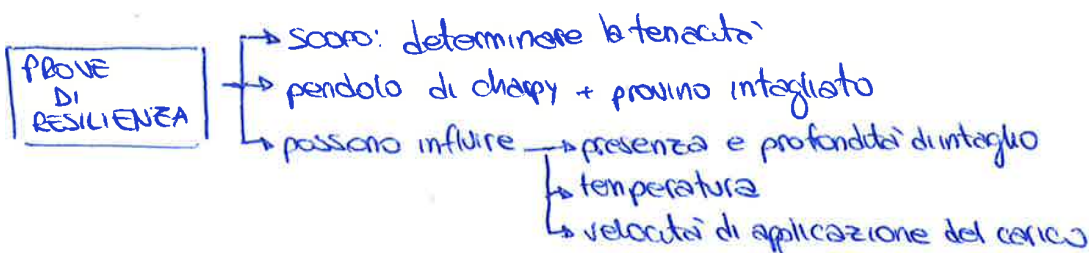 PROVE
DI
RESILIENZA
scopo: determinare la tenacità
pendolo di charpy + provino intagliato
possono influire
presenza e profondità di intaglio
temperatura
velocità di applicazione del carico